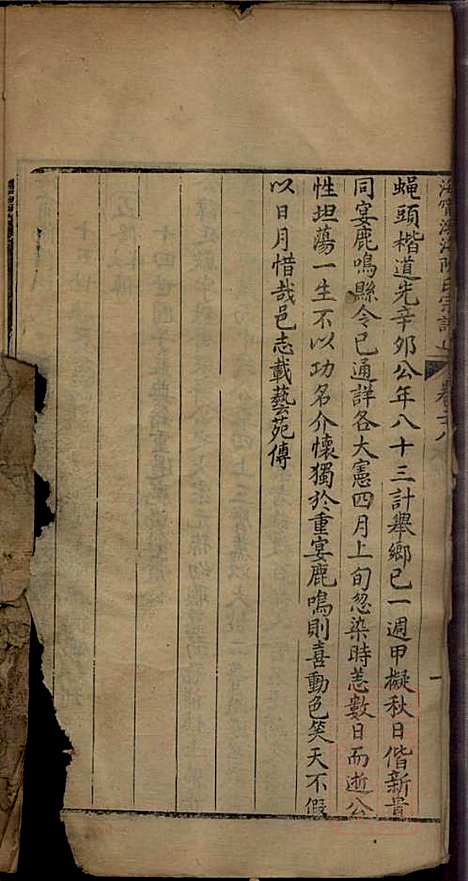 海寧渤海陳氏宗譜
卷十八
蠅頭楷道光辛夘公年八十三計舉鄉已一週甲擬秋日偕新貴
同宴鹿鳴縣令已通詳各大憲四月上旬忽染時恙數日而逝公
性坦蕩一生不以功名介懷獨於重宴鹿鳴則喜動色笑天不假
以日月惜哉邑志載藝苑傳